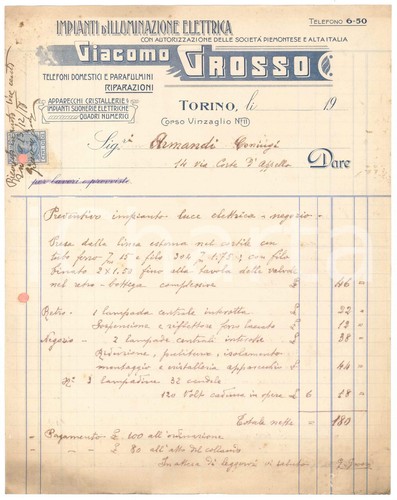 TELEFONO 6-50
IMPIANTI D'ILLUMINAZIONE ELETTRICA
CON AUTORIZZAZIONE DELLE SOCIETÀ PIEMONTESE E ALTA ITALIA
GIACOMO GROSSO
TELEFONI DOMESTICI E PARAFULMINI
RIPARAZIONI
APPARECCHI CRISTALLERIE
IMPIANTI SUONERIE ELETTRICHE
QUADRI NUMERICI
TORINO, li 19
CORSO VINZAGLIO No 11
Sig. Armandi
14 via Corte D'Appello
Dare
per lavori e provviste
Preventivo impianto luce elettrica - negozio -
Prese dalla linea esterna nel cortile con
tubo ferro 15 e fili con filo
2 x 1,50 fino alla tavola delle valvole
nel retro-bottega complessive £ 46 =
Retro - 1 lampada centrale interrotta £ 22 =
Sospensione e riflettore ferro £ 12 =
Negozio - 2 lampade centrali £ 38 =
Riduzione, pulitura, isolamento
montaggio e vetralleria apparecchi £ 44 =
No 3 lampadine 32 candele
120 Volt caduna in opera £ 6 £ 28 =
Totale nette £ 180
Pagamento £ 100 all'ordinazione
» £ 80 all'atto del collaudo